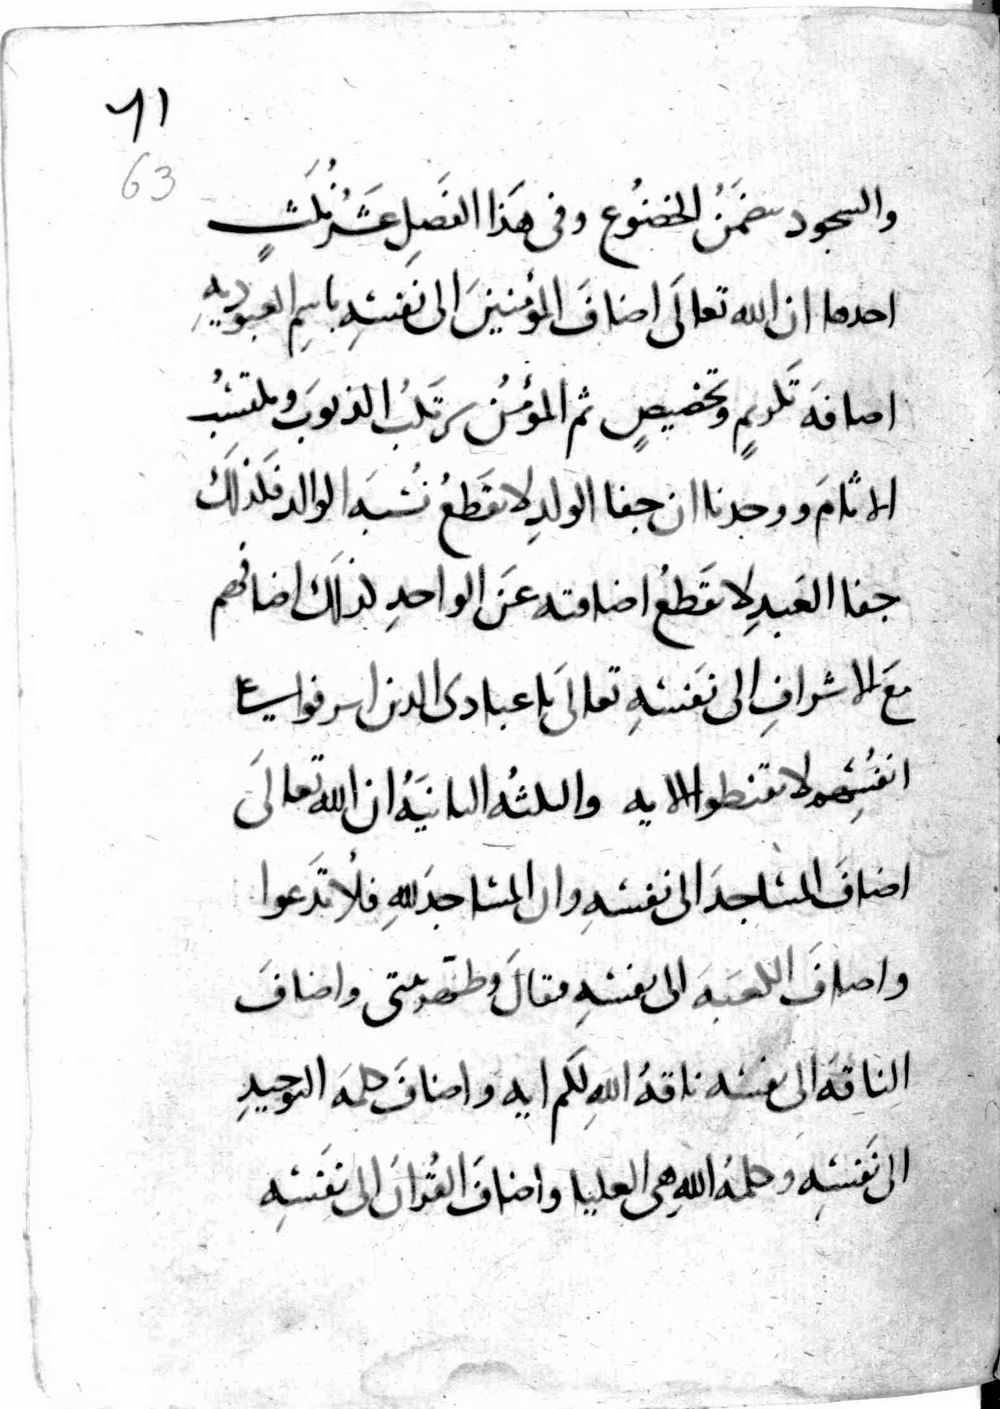 ٦١
63
والسجود يتضمَنُ الخضنُوع وفى هَذا الفَصلِ عَشرُ نُكَتٍ
احدها ان الله تعالَى اضافَ المؤمِنينَ الى نَفسِهِ باسِمِ العبُوديهِ
اضافةَ تَكريمٍ وتَخصيصٍ ثم المؤمنُ يرتَكبُ الذنوبَ ويكتسِبُ
الاثامَ ووجدنا ان جفا الولدِ لا يقَطعُ نسبَهَ الوالد فكذلكَ
جفا العَبدِ لا يقَطعُ اضافته عَن الواحدِ لذلَك اضافهم
معَ الاسرافِ الى نفَسهِ تعالىَ يا عبادى الذين اسرفوا على
انفُسِهم لا تقنطوا الايه والنكتهُ الثانيَهُ ان الله تعالَى
اضافَ المسَاجدَ الى نفسهِ وان المسَاجدَ للهِ فلَا تدَعوا
واضافَ الكعبَهَ الى نفسهِ فقالَ وطَهر بيتى واضافَ
الناقةَ الى نفسه ناقةُ اللهِ لكَم ايه واضافَ كلمةَ التوحيدِ
الى نَفسِهِ وَكلمةُ اللهِ هى العليا واضافَ القُرانَ الى نَفسِهِ